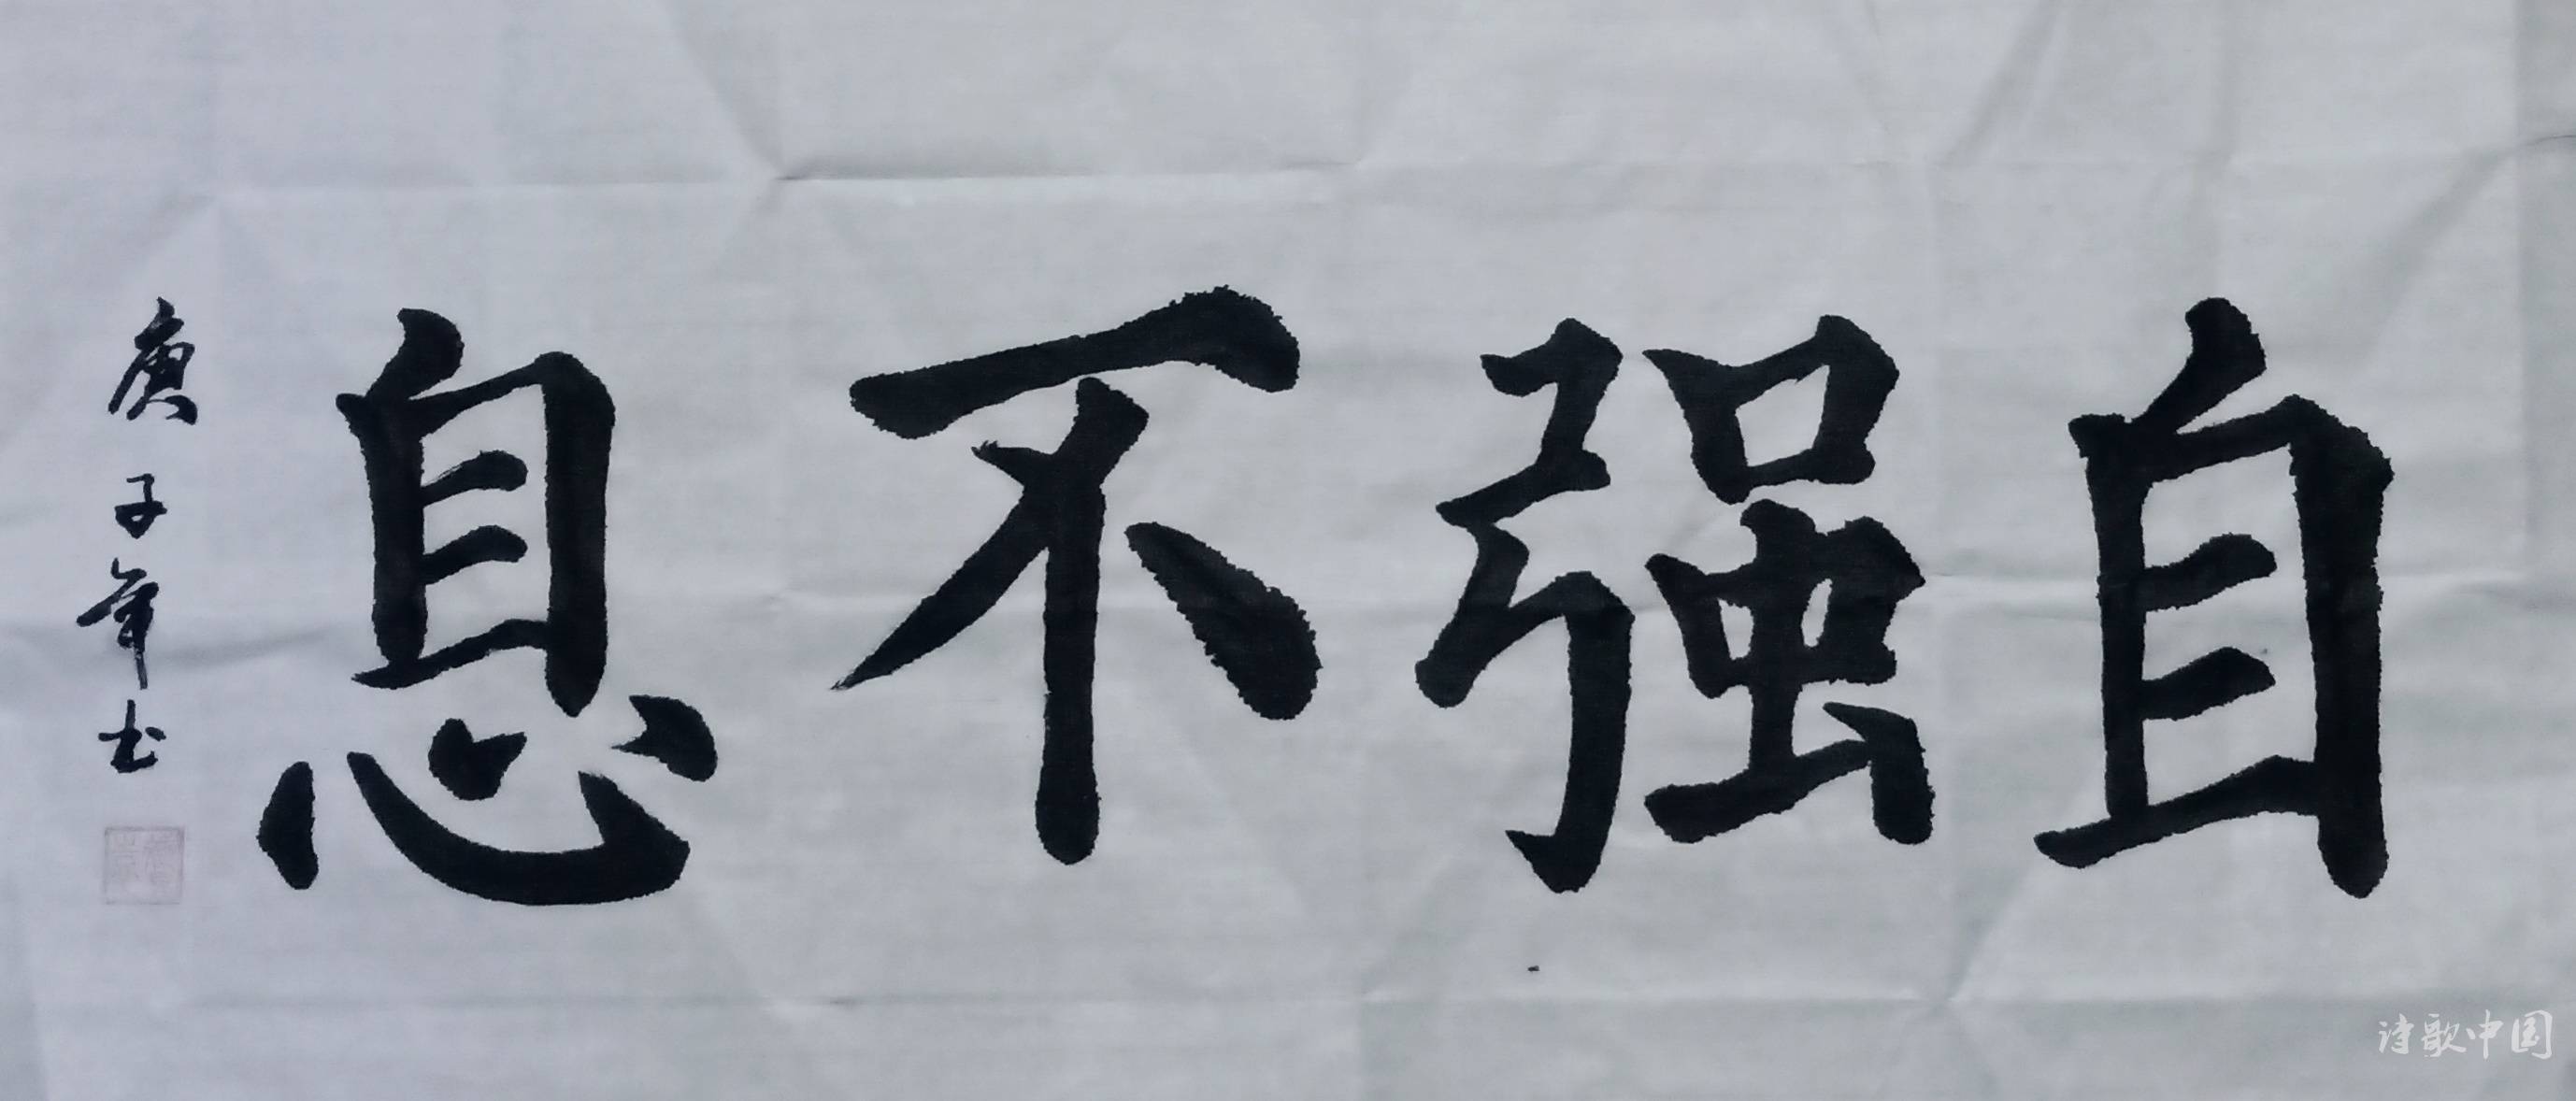 自强不息
庚子年书
诗歌中国